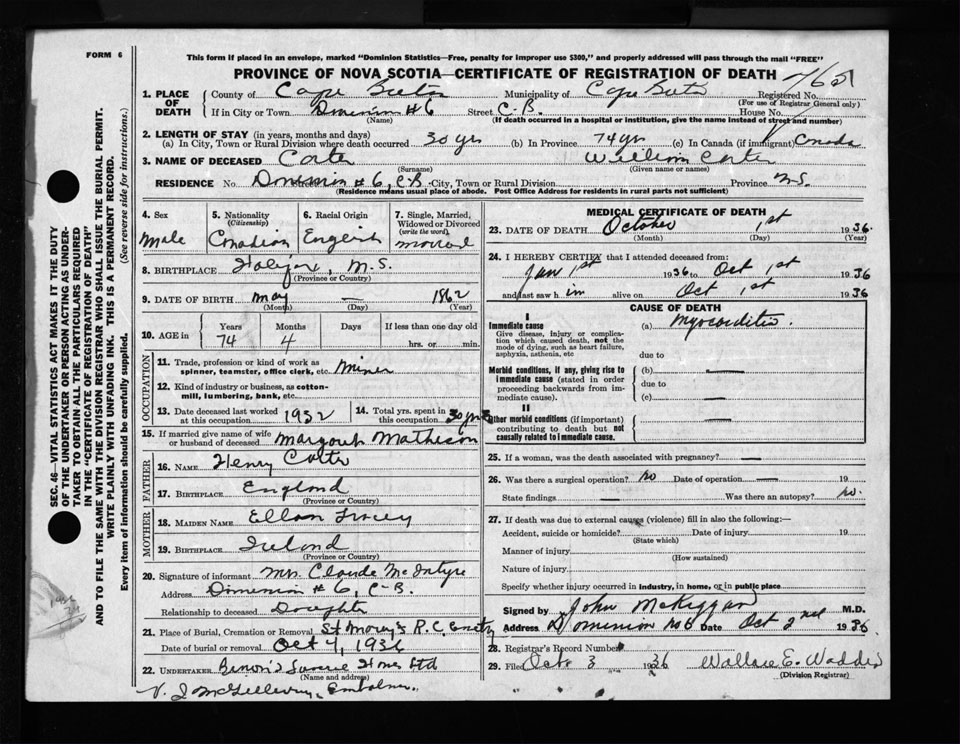 FORM 6
This form if placed in an envelope, marked "Dominion Statistics—Free, penalty for improper use $300," and properly addressed will pass through the mail "FREE"
PROVINCE OF NOVA SCOTIA—CERTIFICATE OF REGISTRATION OF DEATH
1. PLACE OF DEATH County of Cape Breton Municipality of Cape Breton Registered No.
(For use of Registrar General only)
If in City or Town Dominion #6 Street C-B. House No.
(Name) (If death occurred in a hospital or institution, give the name instead of street and number)
2. LENGTH OF STAY (in years, months and days)
(a) In City, Town or Rural Division where death occurred 30 yrs (b) In Province 74 yrs (c) In Canada (if immigrant) Canada
3. NAME OF DECEASED William
(Surname) (Given name or names)
RESIDENCE No. Dominion #6, C-B. City, Town or Rural Division Province N.S.
(Residence means usual place of abode. Post Office Address for residents in rural parts not sufficient)
4. Sex Male
5. Nationality (Citizenship) Canadian
6. Racial Origin English
7. Single, Married, Widowed or Divorced (write the word) Married
8. BIRTHPLACE Halifax, N.S.
(Province or Country)
9. DATE OF BIRTH May — 1862
(Month) (Day) (Year)
10. AGE in Years 74 Months 4 Days If less than one day old hrs. or min.
OCCUPATION
11. Trade, profession or kind of work as spinner, teamster, office clerk, etc. Miner
12. Kind of industry or business, as cotton-mill, lumbering, bank, etc.
13. Date deceased last worked at this occupation 1932
14. Total yrs. spent in this occupation 30 yrs
15. If married give name of wife or husband of deceased Margaret Matheson
FATHER
16. NAME Henry
17. BIRTHPLACE England
(Province or Country)
MOTHER
18. MAIDEN NAME Ellen
19. BIRTHPLACE Ireland
(Province or Country)
20. Signature of informant Mrs. Claude McIntyre
Address Dominion #6, C-B.
Relationship to deceased Daughter
21. Place of Burial, Cremation or Removal St Mary's R.C.
Date of burial or removal Oct 4, 1936
22. UNDERTAKER Ltd
(Name and address)
Embalmer
MEDICAL CERTIFICATE OF DEATH
23. DATE OF DEATH October 1st 1936.
(Month) (Day) (Year)
24. I HEREBY CERTIFY that I attended deceased from:
Jan 1st 1936 to Oct 1st 1936
and last saw him alive on Oct 1st 1936
CAUSE OF DEATH
I
Immediate cause
Give disease, injury or complication which caused death, not the mode of dying, such as heart failure, asphyxia, asthenia, etc
(a) Myocarditis.
due to
Morbid conditions, if any, giving rise to immediate cause (stated in order proceeding backwards from immediate cause).
(b) —
due to
(c) —
II
Other morbid conditions (if important) contributing to death but not causally related to immediate cause.
—
25. If a woman, was the death associated with pregnancy? —
26. Was there a surgical operation? No Date of operation — 19
State findings — Was there an autopsy? No.
27. If death was due to external causes (violence) fill in also the following:—
Accident, suicide or homicide? Date of injury 19
(State which)
Manner of injury
(How sustained)
Nature of injury
Specify whether injury occurred in industry, in home, or in public place
Signed by John McKiggan M.D.
Address Dominion No 6 Date Oct 2nd 1936
28. Registrar's Record Number
29. Filed Oct 3 1936 Wallace E.
(Division Registrar)
SEC. 46—VITAL STATISTICS ACT MAKES IT THE DUTY
OF THE UNDERTAKER OR PERSON ACTING AS UNDER-
TAKER TO OBTAIN ALL THE PARTICULARS REQUIRED
IN THE "CERTIFICATE OF REGISTRATION OF DEATH"
AND TO FILE THE SAME WITH THE DIVISION REGISTRAR WHO SHALL ISSUE THE BURIAL PERMIT.
WRITE PLAINLY WITH UNFADING INK. THIS IS A PERMANENT RECORD.
Every item of information should be carefully supplied. (See reverse side for instructions.)